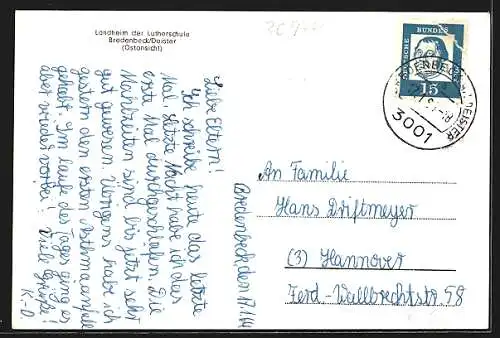 Landheim der Lutherschule
Bredenbeck/Deister
(Ostansicht)
Bredenbeck, den 17.1.64
Liebe Eltern!
Ich schreibe heute das letzte
Mal. Letzte Nacht habe ich das
erste Mal durchgeschlafen. Die
Mahlzeiten sind bis jetzt sehr
gut gewesen. Übrigens habe ich
gestern den ersten Asthmaanfall
gehabt. Im Laufe des Tages ging es
aber wieder vorbei! Viele Grüße!
K-D
DEUTSCHE BUNDES
15
BREDENBECK
DEISTER
3001
An Familie
Hans Driftmeyer
(3) Hannover
Ferd-Wallbrechtstr. 58